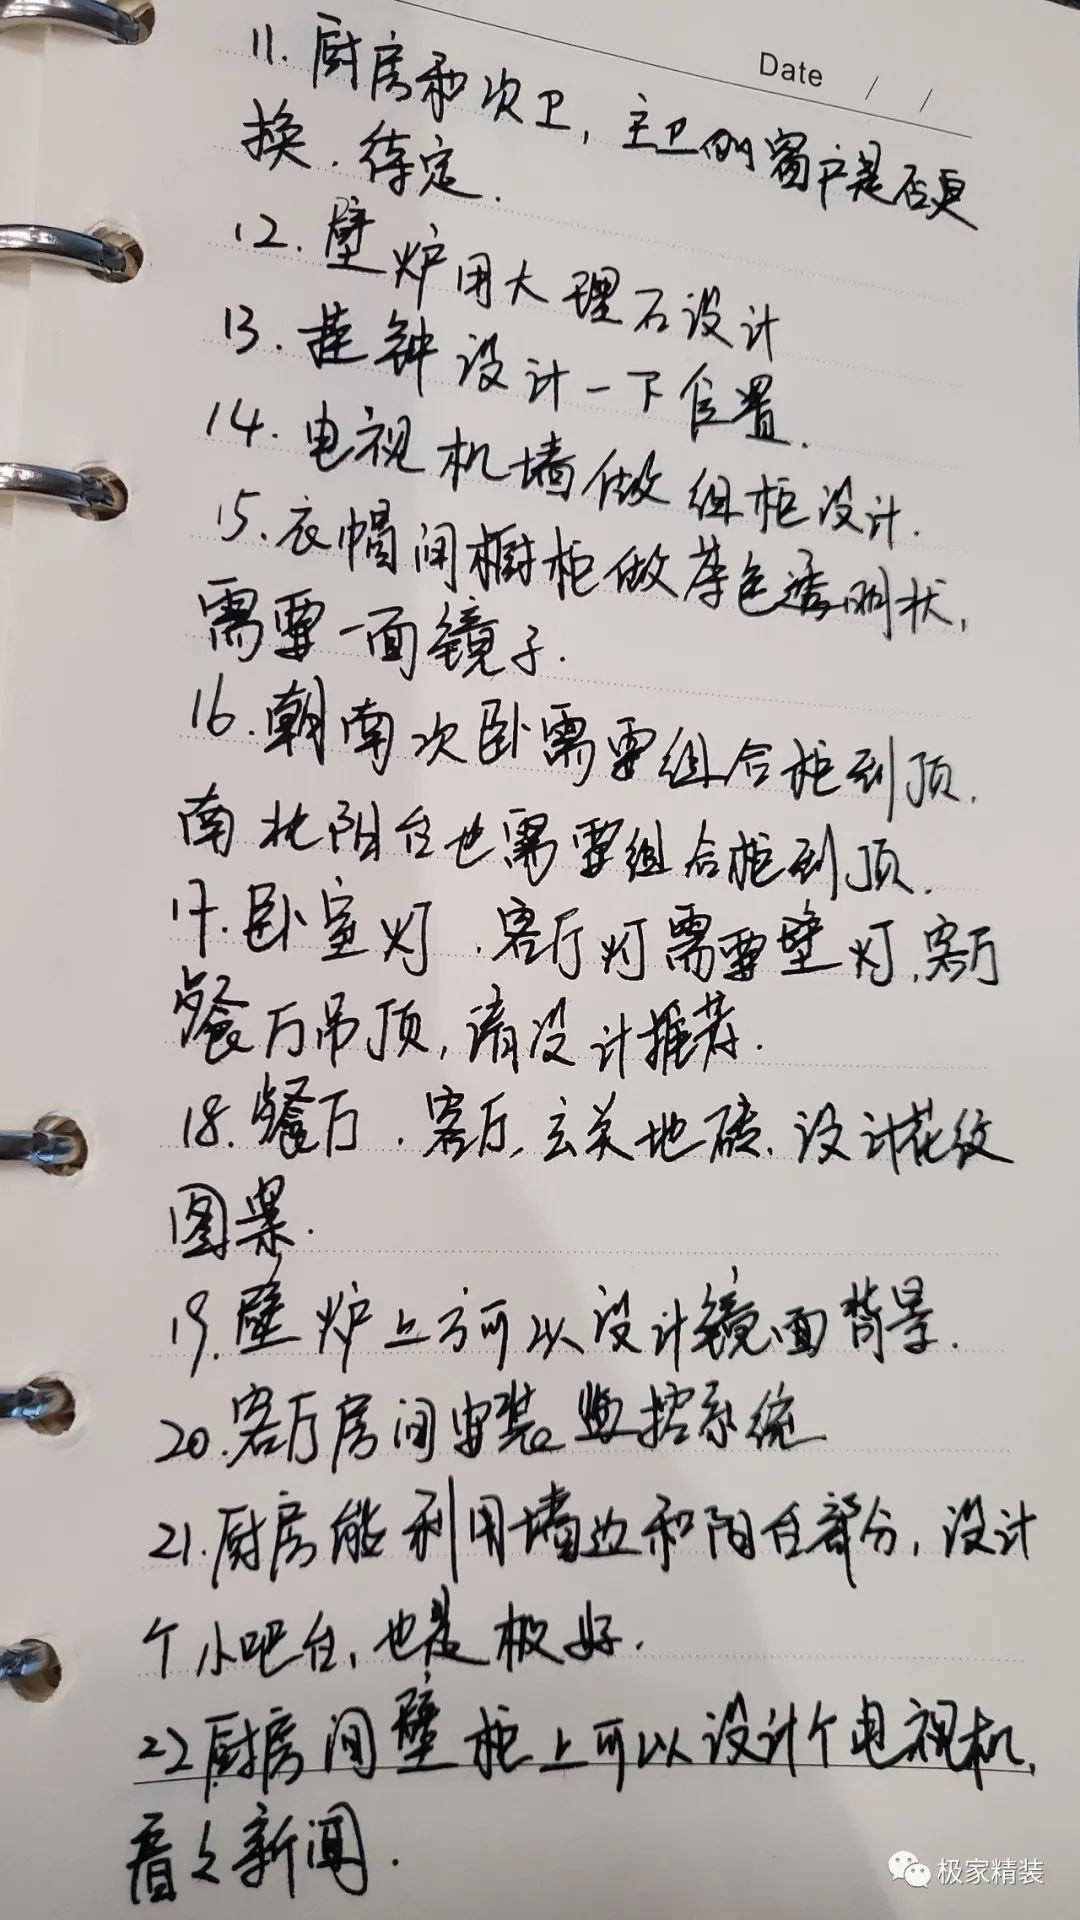 Date / /
11. 厨房和次卫, 主卫的窗户是否更
换. 待定.
12. 壁炉用大理石设计
13. 挂钟设计一下位置.
14. 电视机墙做组柜设计.
15. 衣帽间橱柜做茶色透明状,
需要一面镜子.
16. 朝南次卧需要组合柜到顶.
南北阳台也需要组合柜到顶.
17. 卧室灯. 客厅灯需要壁灯, 客厅
餐厅吊顶, 请设计推荐.
18. 餐厅. 客厅, 玄关地砖. 设计花纹
图案.
19. 壁炉上方可以设计镜面背景.
20. 客厅房间安装监控系统
21. 厨房能利用墙边和阳台部分, 设计
个小吧台, 也是极好.
22 厨房间壁柜上可以设计个电视机,
看看新闻.
极家精装